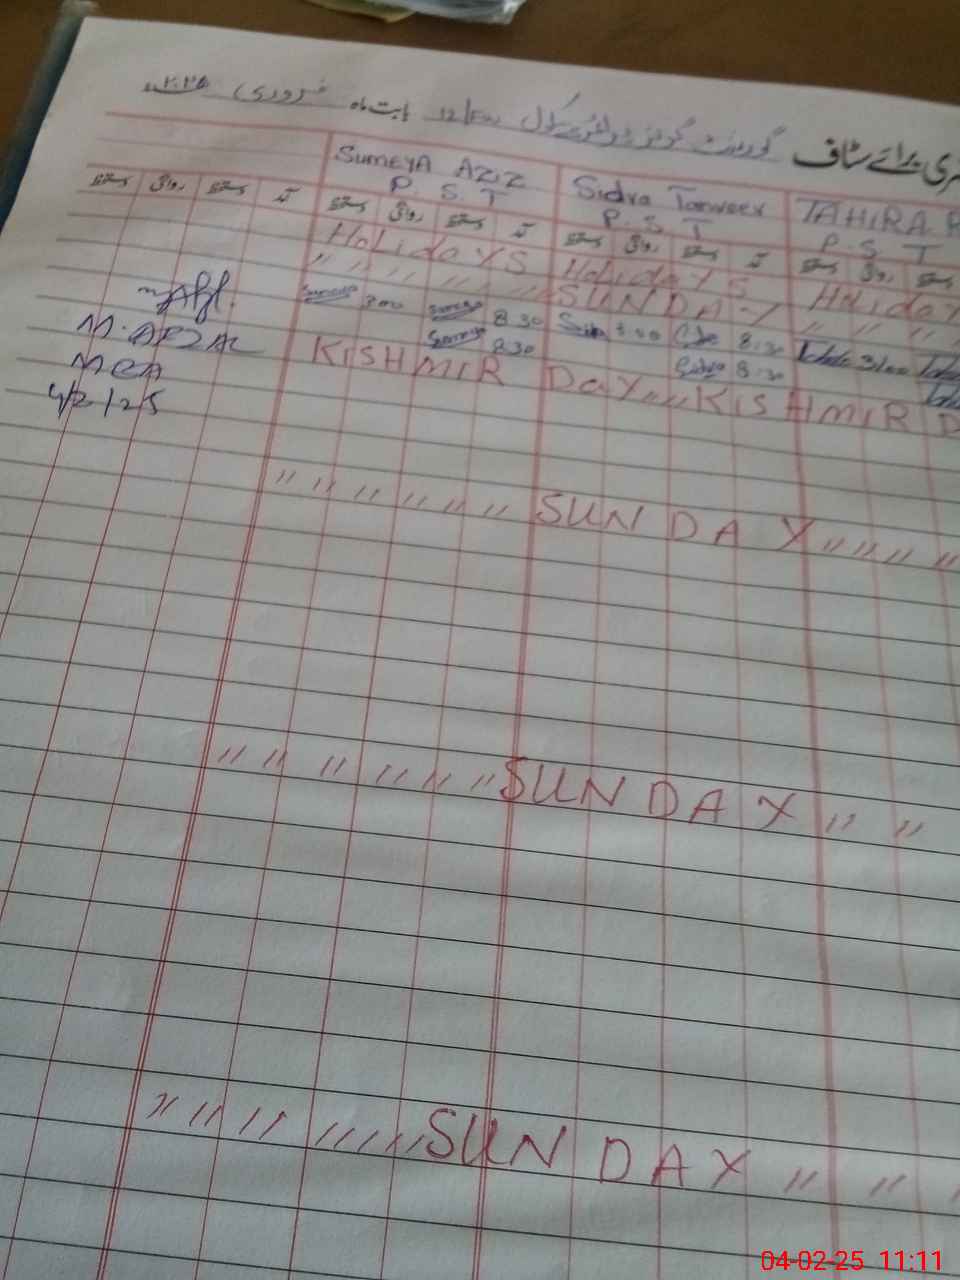 حاضری برائے سٹاف گورنمنٹ گرلز پرائمری سکول 12/EW بابت ماہ فروری ۲۰۲۵
SUMEYA AZIZ Sidra Tanveer TAHIRA
P. S. T P. S. T P. S T
دستخط روانگی دستخط آمد دستخط روانگی دستخط آمد دستخط روانگی دستخط آمد دستخط روانگی دستخط
HoLidays HoLidays HoLiday
" " " " " " SUNDAY " " "
Sumeya 3:00 Sumeya 8:30 3:00 8:30 3:00
Sumeya 8:30 Sidra 8:30
KISHMIR DaY " " KISHMIR D
M. AFZAL
MEA
4/2/25
" " " " " " SUNDAY " " " "
" " " " " " SUNDAY " "
" " " " " " " SUNDAY " " "
04-02-25 11:11